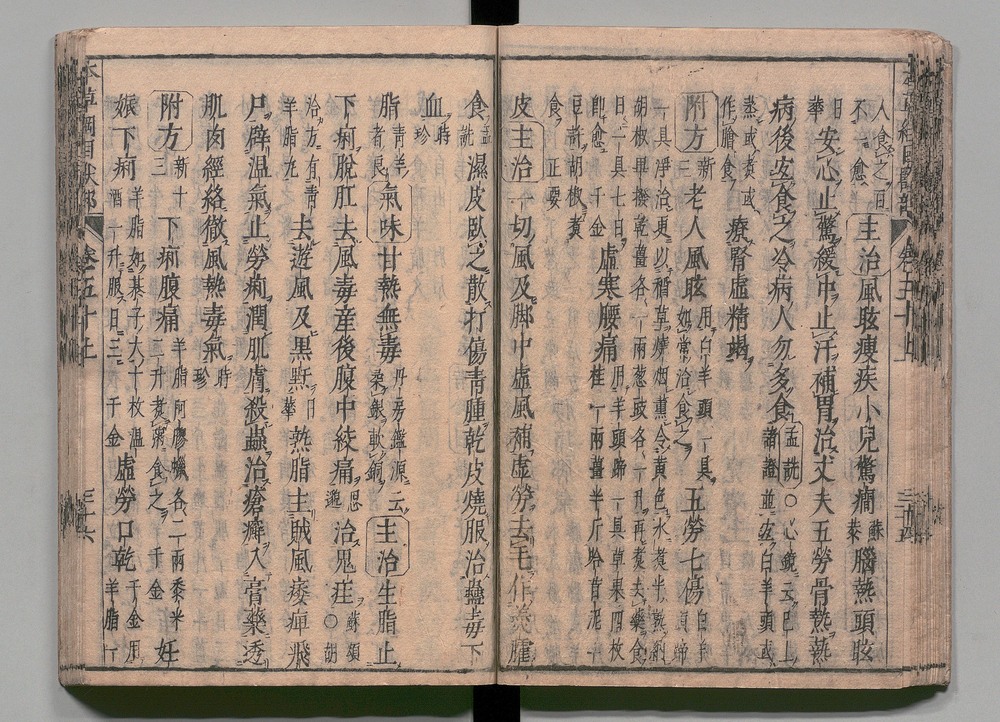 人食之而
不愈 主治風眩瘦疾小兒驚癇蘇恭腦熱頭眩
日華安心止驚緩中止汗補胃治丈夫五勞骨熱熱
病後宜食之冷病人勿多食孟詵○心鏡云已上
諸證並宜白羊頭或
蒸或煮或
作膾食療腎虛精竭
附方新三老人風眩用白羊頭一具如常治食之五勞七傷白羊頭蹄
一具淨治更以稻草燒烟薰令黃色水煮半熟納
胡椒畢撥乾薑各一兩葱豉各一升再煮去藥食
日一具七日
即愈千金虛寒腰痛用羊頭蹄一具草果四枚
桂一兩薑半斤哈昔泥一
豆許胡椒煮
食正要
皮主治一切風及脚中虛風補虛勞去毛作羹臛
食孟詵濕皮臥之散打傷青腫乾皮燒服治蠱毒下
血時珍
脂青羊者良氣味甘熱無毒丹房鑑源云柔銀軟銅主治生脂止
下痢脫肛去風毒產後腹中絞痛思邈治鬼疰蘇頌○胡
洽方有青
羊脂丸去遊風及黑䵟日華熟脂主賊風痿痺飛
尸辟溫氣止勞痢潤肌膚殺蟲治瘡癬入膏藥透
肌肉經絡徹風熱毒氣時珍
附方新十三下痢腹痛羊脂阿膠蠟各二兩黍米二升煮粥食之千金妊
娠下痢羊脂如棊子大十枚溫酒一升服日三千金虛勞口乾千金用羊脂